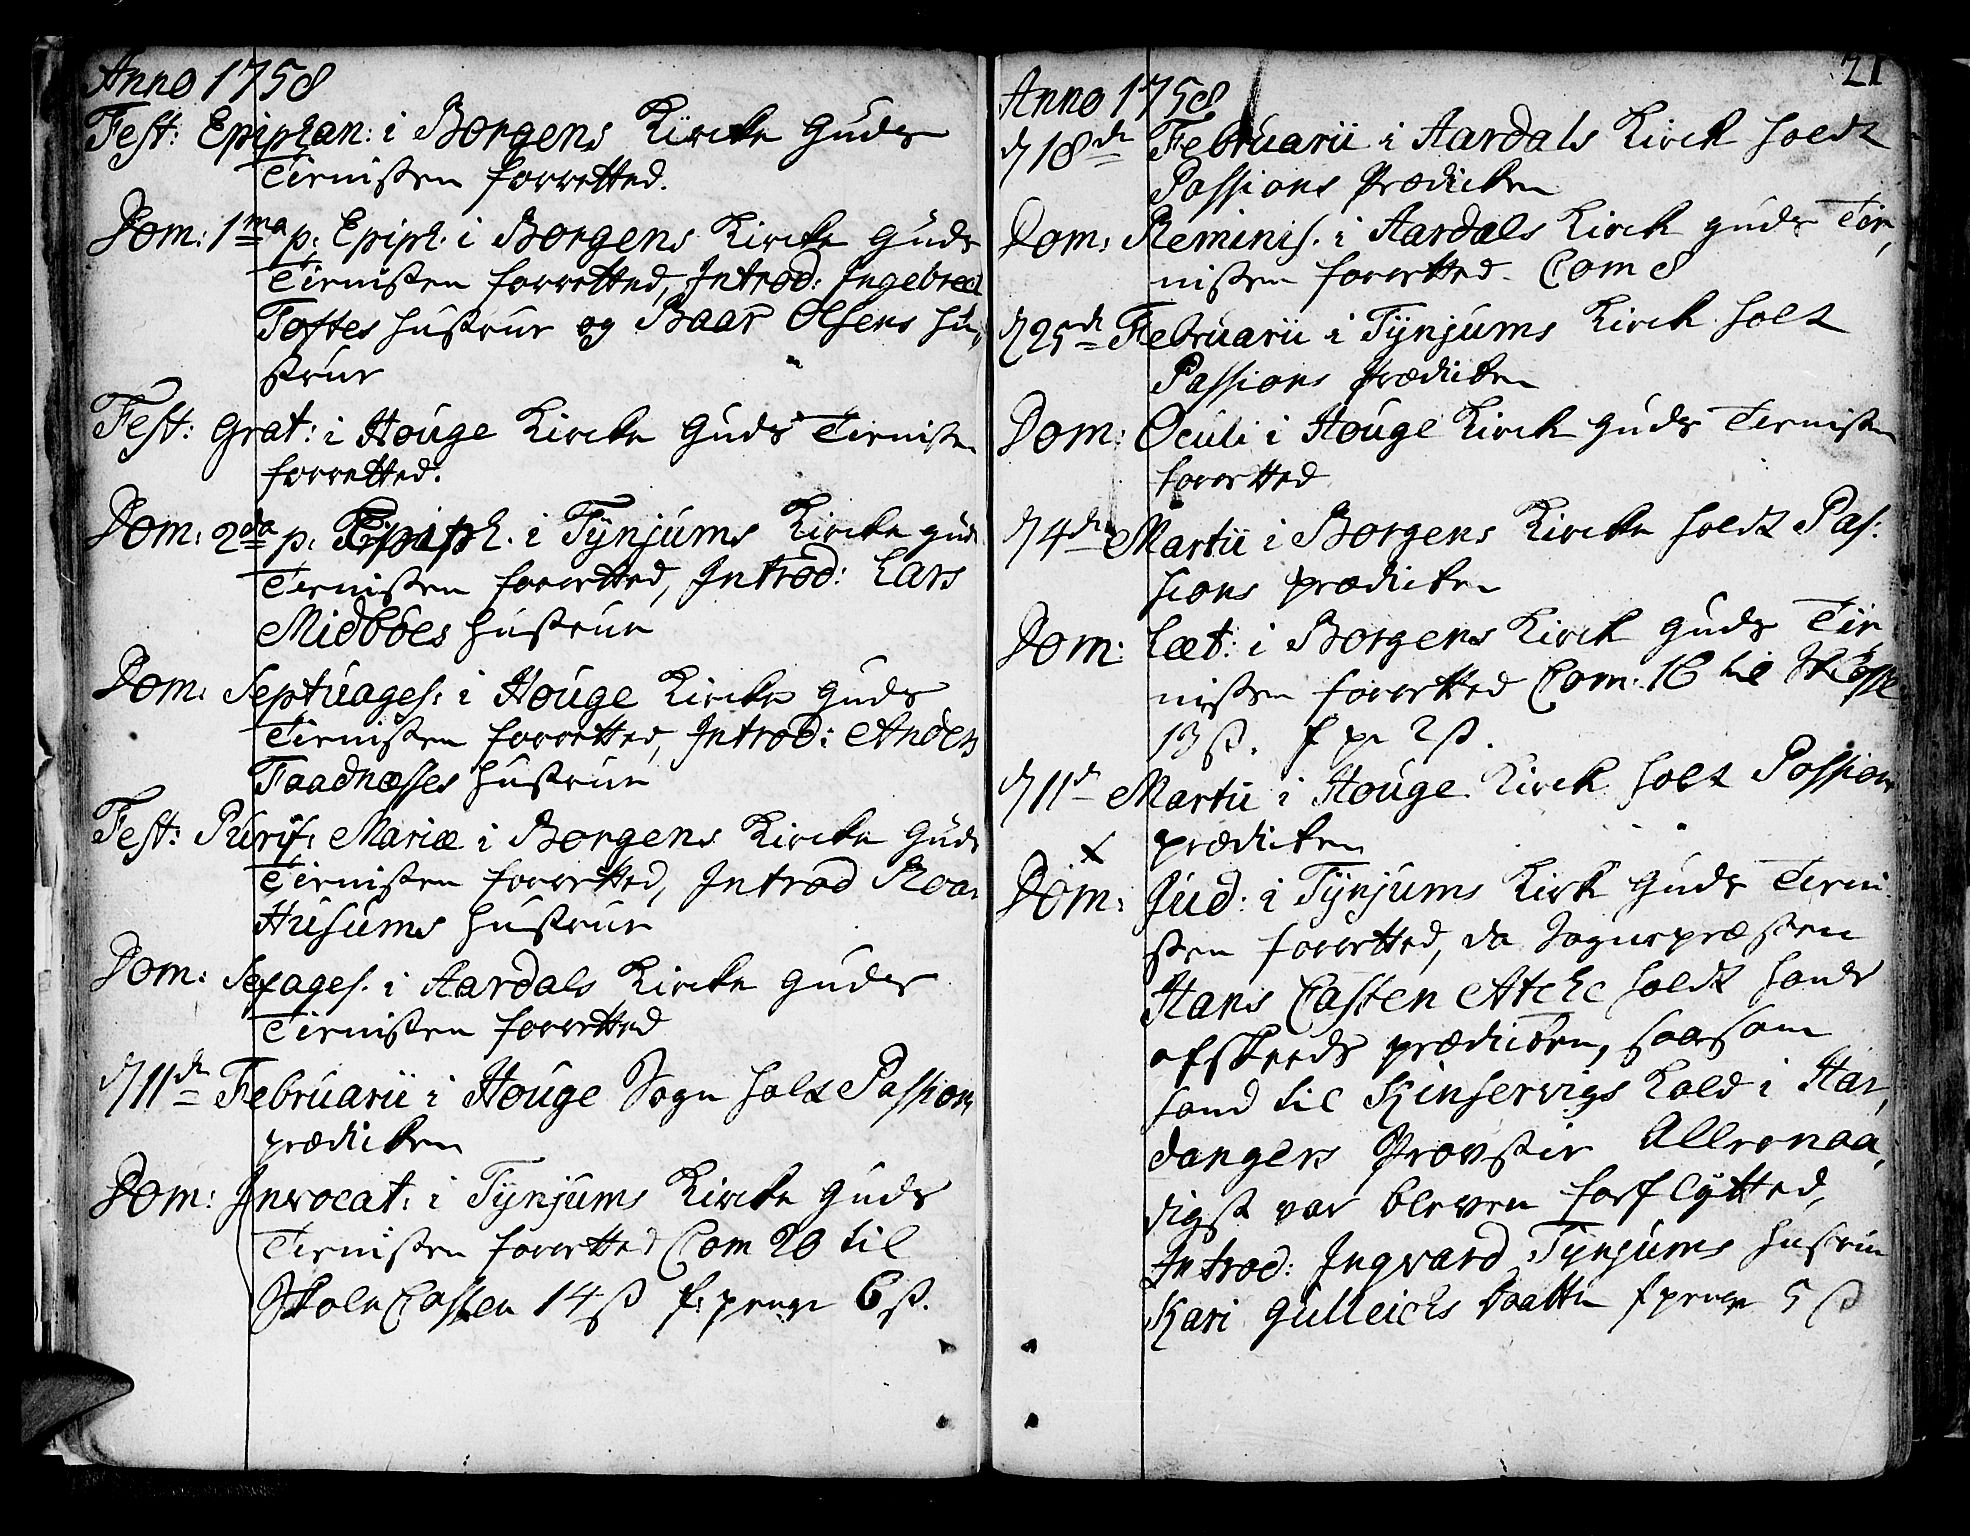 Anno 1758
Fest: Epiphan: i Borgens Kircke Guds
Tienisten forretted.
Dom: 1ma p: Epiph: i Borgens Kircke Guds
Tienisten forretted, Introd: Ingebrect
Toftes Hustrue og Baar Olsens Hu,
strue
Fest: Grat: i Houge Kircke Guds Tienisten
forretted.
Dom: 2da p. Epiph. i Tÿnjums Kircke guds
Tienisten forretted, Introd: Lars
Midböes Hustrue
Dom: Septuages: i Houge Kircke Guds
Tienisten forretted, Introd: Anders
Faadnæsses Hustrue
Fest: Purif: Mariæ i Borgens Kircke Guds
Tienisten forretted, Introd Roar
Husums Hustrue
Dom: Sexages. i Aardals Kircke Guds
Tienisten forretted
d 11de Februarii i Houge Sogn holt Passions
prædicken
Dom: Invocat: i Tÿnjums Kircke Guds
Tienisten forretted Com 20 til
Skole Casten 14 ß f: penge 6 ß.
21
Anno 1758
d 18de Februarii i Aardals Kirck holdt
Passions Prædicken
Dom: Reminis. i Aardals Kirck guds Tie,
nisten forretted. Com 8
d 25de Februarii i Tÿnjums Kirck holt
Passions Prædicken
Dom: Oculi i Houge Kirck guds Tienisten
forretted
d 4de Martii i Borgens Kircke holdt Pas:
sions prædicken
Dom: Læt: i Borgens Kirck guds Tie
nisten forretted Com. 16 til
13 ß. f pe 2 ß.
d 11de Martii i Houge Kirck holt Passions
prædicken
x
Dom: Jud: i Tÿnjums Kirck Guds Tieni
sten forretted, da Sognepræsten
Hans Casten Atche holdt hands
afskeeds prædicken, saasom
hand til Kinservigs Kald i Har,
dangers Provstie Allernaa,
digst var bleven forflÿtted,
Introd: Ingvard Tynjums Hustrue
Kari Gulleichs Daatter f penge 5 ß